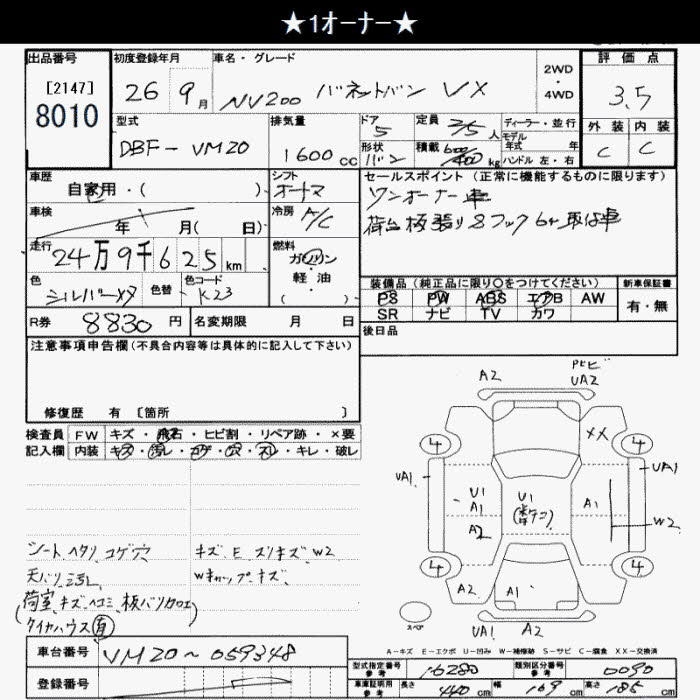 ★1オーナー★
出品番号
[2147]
8010
初度登録年月
26 9月
車名・グレード
NV200 バネットバン VX
2WD
・
4WD
評価点
3.5
外装 内装
C C
型式
DBF-VM20
排気量
1600cc
ドア
5
形状
バン
定員 2/5人
積載 600/400kg
ディーラー・並行
モデル
年式 年
ハンドル 左・右
車歴
自家用・( )
シフト
オートマ
車検
年 月(日)
冷房 A/C
走行
24万9千625km
燃料
ガソリン
・
軽油
( )
色
シルバーメタ
色替
色コード
K23
R券 8830円
名変期限 月 日
セールスポイント(正常に機能するものに限ります)
ワンオーナー車
荷台板張り 8フック6ヶ取付車
装備品(純正品に限り○をつけてください)
PS PW ABS エアB AW
SR ナビ TV カワ
新車保証書
有・無
後日品
注意事項申告欄(不具合内容等は具体的に記入して下さい)
修復歴 有 〔箇所 〕
検査員 FW キズ・飛石・ヒビ割・リペア跡・×要
記入欄 内装 キズ・汚レ・コゲ・穴・スレ・キレ・破レ
シートヘタリ コゲ穴
天バリ 汚レ
(荷室 キズ ヘコミ 板バリカロエ)
タイヤハウス 有
キズ、E スリキズ W2
Wキャップキズ
A2
UA2
XX
4
4
UA1
UA1
U1
A1
A2
U1
A1
W2
4
4
A2
A1
A2
スペア
UA1
A2
A-キズ E-エクボ U-凹み W-補修跡 S-サビ C-腐食 XX-交換済
車台番号
VM20~059348
登録番号
型式指定番号
参考
16280
類別区分番号
参考
0090
車庫証明用
参考
長さ 440cm 幅 169cm 高さ 185cm